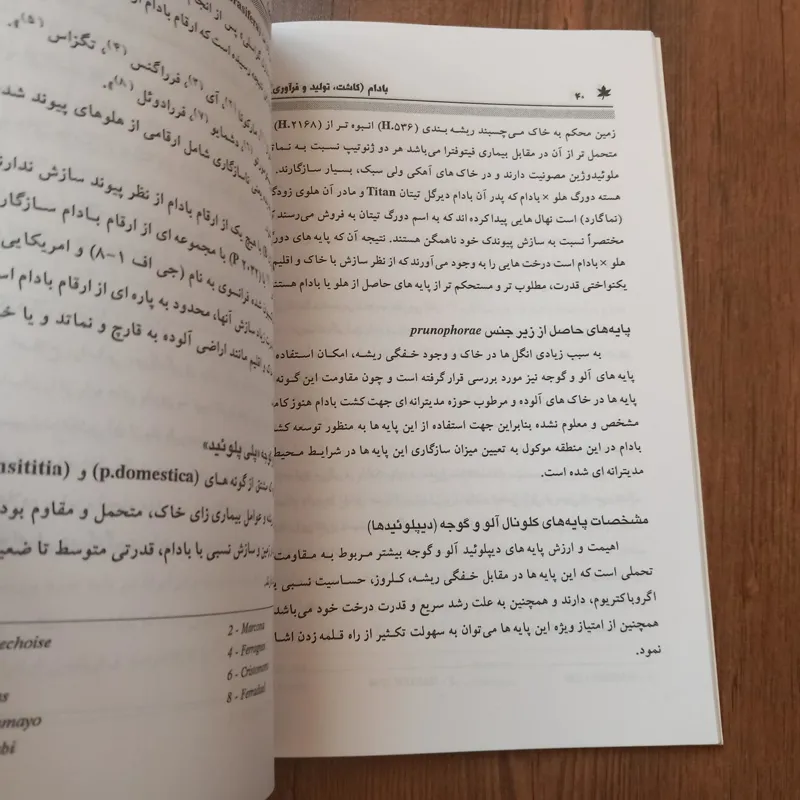 ۴۰ بادام (کاشت، تولید و فرآوری
زمین محکم به خاک می‌چسبند ریشه بندی (H.۵۳۶) انبوه تر از (H.۲۱۶۸)
متحمل تر از آن در مقابل بیماری فیتوفترا می‌باشد هر دو ژنوتیپ نسبت به نمات
ملوئیدوژین مصونیت دارند و در خاک های آهکی ولی سبک، بسیار سازگارند.
هسته دورگ هلو × بادام که پدر آن بادام دیرگل تیتان Titan و مادر آن هلوی زودگ
(نماگارد) است نهال هایی پیدا کرده اند که به اسم دورگ تیتان به فروش می‌رسند ک
مختصراً نسبت به سازش پیوندک خود ناهمگن هستند. نتیجه آن که پایه های دور
هلو × بادام است درخت هایی را به وجود می‌آورند که از نظر سازش با خاک و اقلیم
یکنواختی قدرت، مطلوب تر و مستحکم تر از پایه های حاصل از هلو یا بادام هستند
پایه‌های حاصل از زیر جنس prunophorae
به سبب زیادی انگل ها در خاک و وجود خفگی ریشه، امکان استفاده
پایه های آلو و گوجه نیز مورد بررسی قرار گرفته است و چون مقاومت این گونه
پایه ها در خاک های آلوده و مرطوب حوزه مدیترانه ای جهت کشت بادام هنوز کامل
مشخص و معلوم نشده بنابراین جهت استفاده از این پایه ها به منظور توسعه کشت
بادام در این منطقه موکول به تعیین میزان سازگاری این پایه ها در شرایط محیط
مدیترانه ای شده است.
مشخصات پایه‌های کلونال آلو و گوجه (دیپلوئیدها)
اهیمت و ارزش پایه های دیپلوئید آلو و گوجه بیشتر مربوط به مقاومت
تحملی است که این پایه ها در مقابل خفگی ریشه، کلروز، حساسیت نسبی ب
اگروباکتریوم، دارند و همچنین به علت رشد سریع و قدرت درخت خود می‌باشد
همچنین از امتیاز ویژه این پایه ها می‌توان به سهولت تکثیر از راه قلمه زدن اشا
نمود.
آی (۳)، فرراگنس (۴)، تگزاس (۵) و
دشمایو (۷)، فررادوئل (۸) و
شامل ارقامی از هلوهای پیوند شد
هیچ یک از ارقام بادام از نظر پیوند سازش ندارند
با مجموعه ای از ارقام بادام سازگار
فرانسوی به نام (جی اف ۱–۸) و امریکایی
سازش آنها، محدود به پاره ای از ارقام بادام اس
و اقلیم مانند اراضی آلوده به قارچ و نماتد و یا خ
«پلی پلوئید»
از گونه های (p.domestica) و (nsititia
و عوامل بیماری زای خاک، متحمل و مقاوم بود
و سازش نسبی با بادام، قدرتی متوسط تا ضعی
2 - Marcona
4 - Ferragnes
6 - Cristomorto
8 - Ferraduel
echoise
mayo